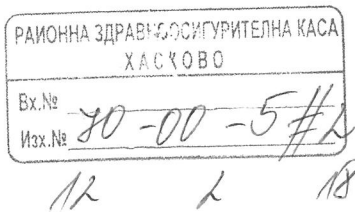 РАЙОННА ЗДРАВНООСИГУРИТЕЛНА КАСА
ХАСКОВО
Вх.№
Изх.№ 70-00-5#2
12 2 18